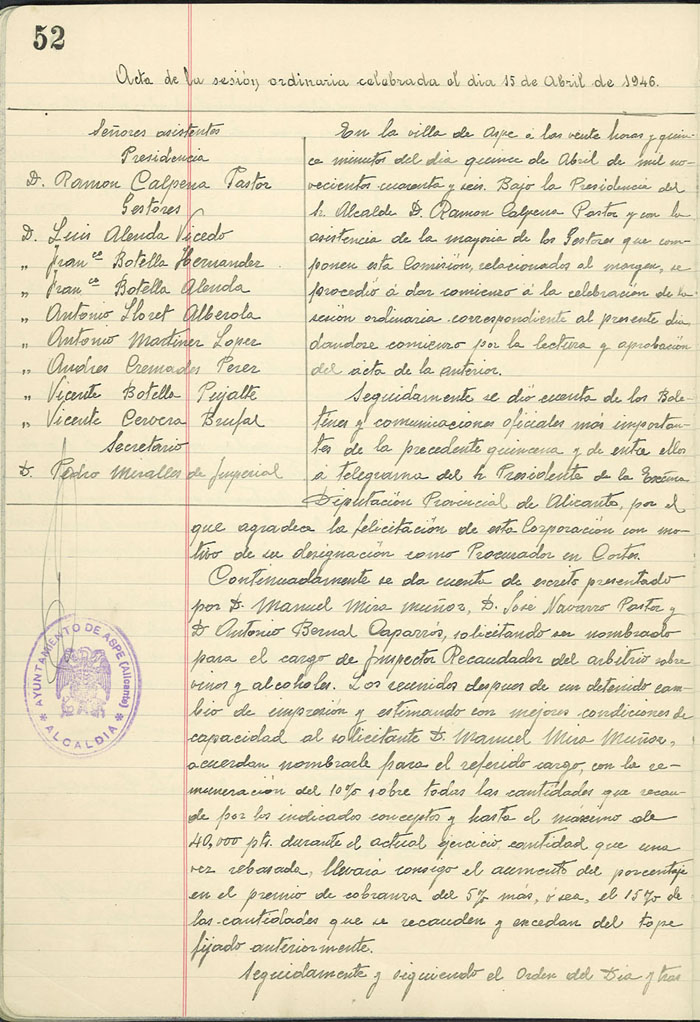 52
Acta de la sesión, ordinaria celebrada el dia 15 de Abril de 1946.
Señores asistentes
Presidencia
D. Ramon Calpena Pastor
Gestores
D. Luis Alenda Vicedo
„ Fran.co Botella Hernander
„ Fran.co Botella Alenda
„ Antonio Lloret Alberola
„ Antonio Martiner Loper
„ Andres Cremades Perer
„ Vicente Botella Pujalte
„ Vicente Cervera Brufal
Secretario
D. Pedro Miralles de Imperial
En la villa de Aspe á las veinte horas y quin-
ce minutos del dia quince de Abril de mil no-
vecientos cuarenta y seis. Bajo la Presidencia del
Sr. Alcalde D. Ramon Calpena Pastor y con la
asistencia de la mayoria de los Gestores que com-
ponen esta Comisión, relacionados al margen, se
procedió á dar comienzo á la celebración de la
sesión ordinaria correspondiente al presente dia
dandose comienzo por la lectura y aprobación
del acta de la anterior.
Seguidamente se dió cuenta de los Bole-
tines y comunicaciones oficiales más importan-
tes de la precedente quincena y de entre ellos
á telegrama del Sr. Presidente de la Excma
Diputación Provincial de Alicante, por el
que agradece la felicitación de esta Corporación con mo-
tivo de su designación como Procurador en Cortes.
Continuadamente se da cuenta de escrito presentado
por D. Manuel Mira Muñoz, D. José Navarro Pastor y
D Antonio Bernal Caparrós, solicitando ser nombrado
para el cargo de Inspector Recaudador del arbitrio sobre
vinos y alcoholes. Los reunidos despues de un detenido cam-
bio de impresión y estimando con mejores condiciones de
capacidad al solicitante D. Manuel Mira Muñoz,
acuerdan nombrarle para el referido cargo, con la re-
muneración del 10% sobre todas las cantidades que recau-
de por los indicados conceptos y hasta el máximo de
40,000 pts. durante el actual ejercicio cantidad que una
vez rebasada, llevará consigo el aumento del porcentaje
en el premio de cobranza del 5% más, ó sea, el 15% de
las cantidades que se recauden y excedan del tope
fijado anteriormente.
Seguidamente y siguiendo el Orden del Dia y tras
AYUNTAMIENTO DE ASPE (Alicante)
* ALCALDIA *